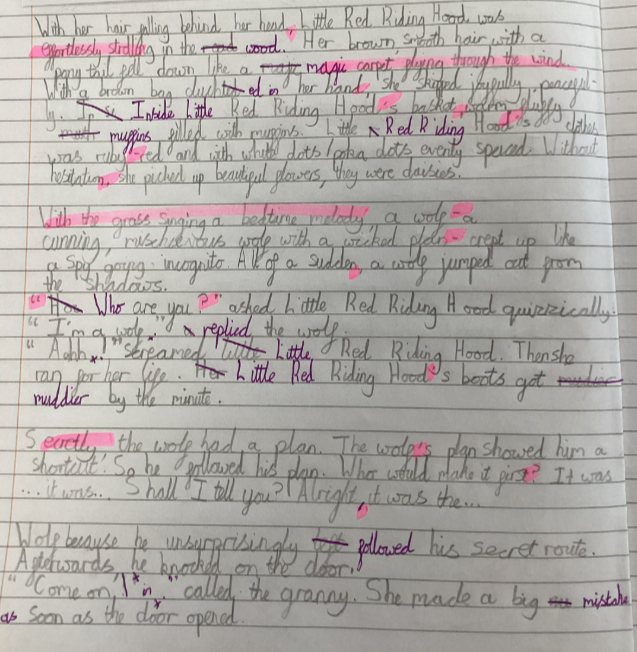 With her hair falling behind her head, Little Red Riding Hood was
effortlessly strolling in the wood. Her brown, smooth hair with a
pony tail fell down like a magic carpet flying through the wind.
With a brown bag clutched in her hand, she skipped joyfully, peaceful-
ly. Inside Little Red Riding Hood's basket, were fluffy
muffins filled with muffins. Little Red Riding Hood's clothes
was ruby-red and with white dots/polka dots evenly spaced. Without
hesitation, she picked up beautiful flowers, they were daisies.
With the grass singing a bedtime melody, a wolf - a
cunning, mischievious wolf with a wicked plan - crept up like
a spy going incognito. All of a sudden, a wolf jumped out from
the shadows.
"Who are you?" asked Little Red Riding Hood quizzically.
"I'm a wolf." replied the wolf.
"Aahh!" screamed Little Red Riding Hood. Then she
ran for her life. Little Red Riding Hood's boots got
muddier by the minute.
Secretly the wolf had a plan. The wolf's plan showed him a
shortcut! So he followed his plan. Who would make it first? It was
... it was... Shall I tell you? Alright, it was the...
Wolf because he unsurprisingly followed his secret route.
Afterwards he knocked on the door.
"Come on in," called, the granny. She made a big mistake
as soon as the door opened.